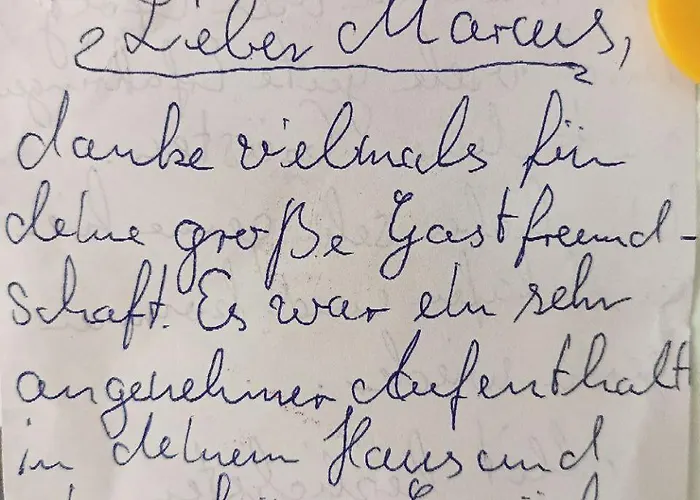 Lieber Marcus,
danke vielmals für
deine große Gastfreund-
schaft. Es war ein sehr
angenehmer Aufenthalt
in deinem Haus und